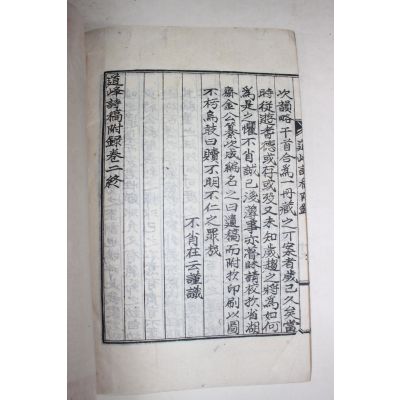 次韻略干首合為一冊藏之丌案者歲已久矣當
時從遊耆德或存或歿又未知歲趨之將為如何
為是之懼不肖誠已淺薄事亦昝昧請校於省湖
齋金公纂次成編名之曰遺稿而附於印刷以圖
不朽烏敢曰贖不明不仁之罪哉
不肖在云謹識
道峰詩稿附錄卷二終
道峰詩稿附錄